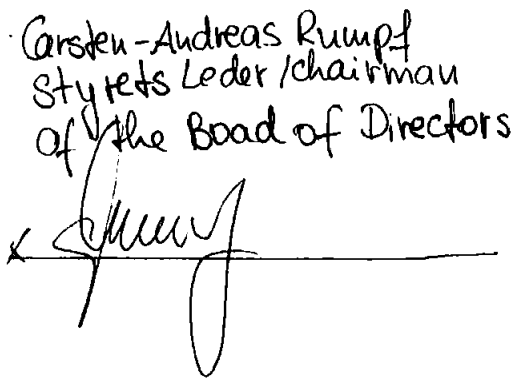 Carsten-Andreas Rumpf
Styrets Leder/chairman
of the Boad of Directors
x